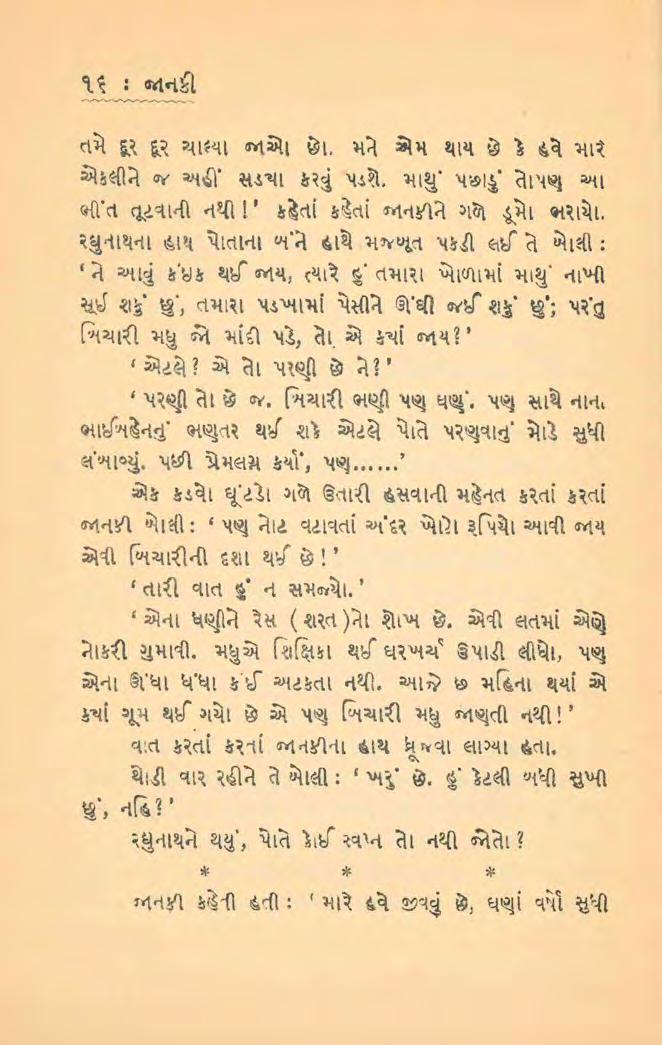 ૧૬ : જાનકી
તમે દૂર દૂર ચાલ્યા જાઓ છો. મને એમ થાય છે કે હવે મારે
એકલીને જ અહીં સડ્યા કરવું પડશે. માથું પછાડું તોપણ આ
ભીંત તૂટવાની નથી!' કહેતાં કહેતાં જાનકીને ગળે ડૂમો ભરાયો.
રઘુનાથના હાથ પોતાના બંને હાથે મજબૂત પકડી લઈ તે બોલી :
‘ને આવું કંઇક થઈ જાય, ત્યારે હું તમારા ખોળામાં માથું નાખી
સૂઈ શકું છું, તમારા પડખામાં પેસીને ઊંઘી જઈ શકું છું; પરંતુ
બિચારી મધુ જો માંદી પડે, તો એ ક્યાં જાય?'
‘એટલે? એ તો પરણી છે ને?'
‘પરણી તો છે જ. બિચારી ભણી પણ ઘણું. પણ સાથે નાના
ભાઈબહેનનું ભણતર થઈ શકે એટલે પોતે પરણવાનું મોડે સુધી
લંબાવ્યું. પછી પ્રેમલગ્ન કર્યાં, પણ......'
એક કડવો ઘૂંટડો ગળે ઉતારી હસવાની મહેનત કરતાં કરતાં
જાનકી બોલી : ‘પણ નોટ વટાવતાં અંદર ખોટો રૂપિયો આવી જાય
એવી બિચારીની દશા થઈ છે!'
‘તારી વાત હું ન સમજ્યો.'
‘એના ધણીને રેસ (શરત)નો શોખ છે. એવી લતમાં એણે
નોકરી ગુમાવી. મધુએ શિક્ષિકા થઈ ઘરખર્ચ ઉપાડી લીધો, પણ
એના ઊંધા ધંધા કંઈ અટકતા નથી. આજે છ મહિના થયાં એ
ક્યાં ગૂમ થઈ ગયો છે એ પણ બિચારી મધુ જાણતી નથી!'
વાત કરતાં કરતાં જાનકીના હાથ ધ્રૂજવા લાગ્યા હતા.
થોડી વાર રહીને તે બોલી : ‘ખરું છે. હું કેટલી બધી સુખી
છું, નહિ?'
રઘુનાથને થયું, પોતે કોઈ સ્વપ્ન તો નથી જોતો?
* * *
જાનકી કહેતી હતી : ‘મારે હવે જીવવું છે, ઘણાં વર્ષો સુધી